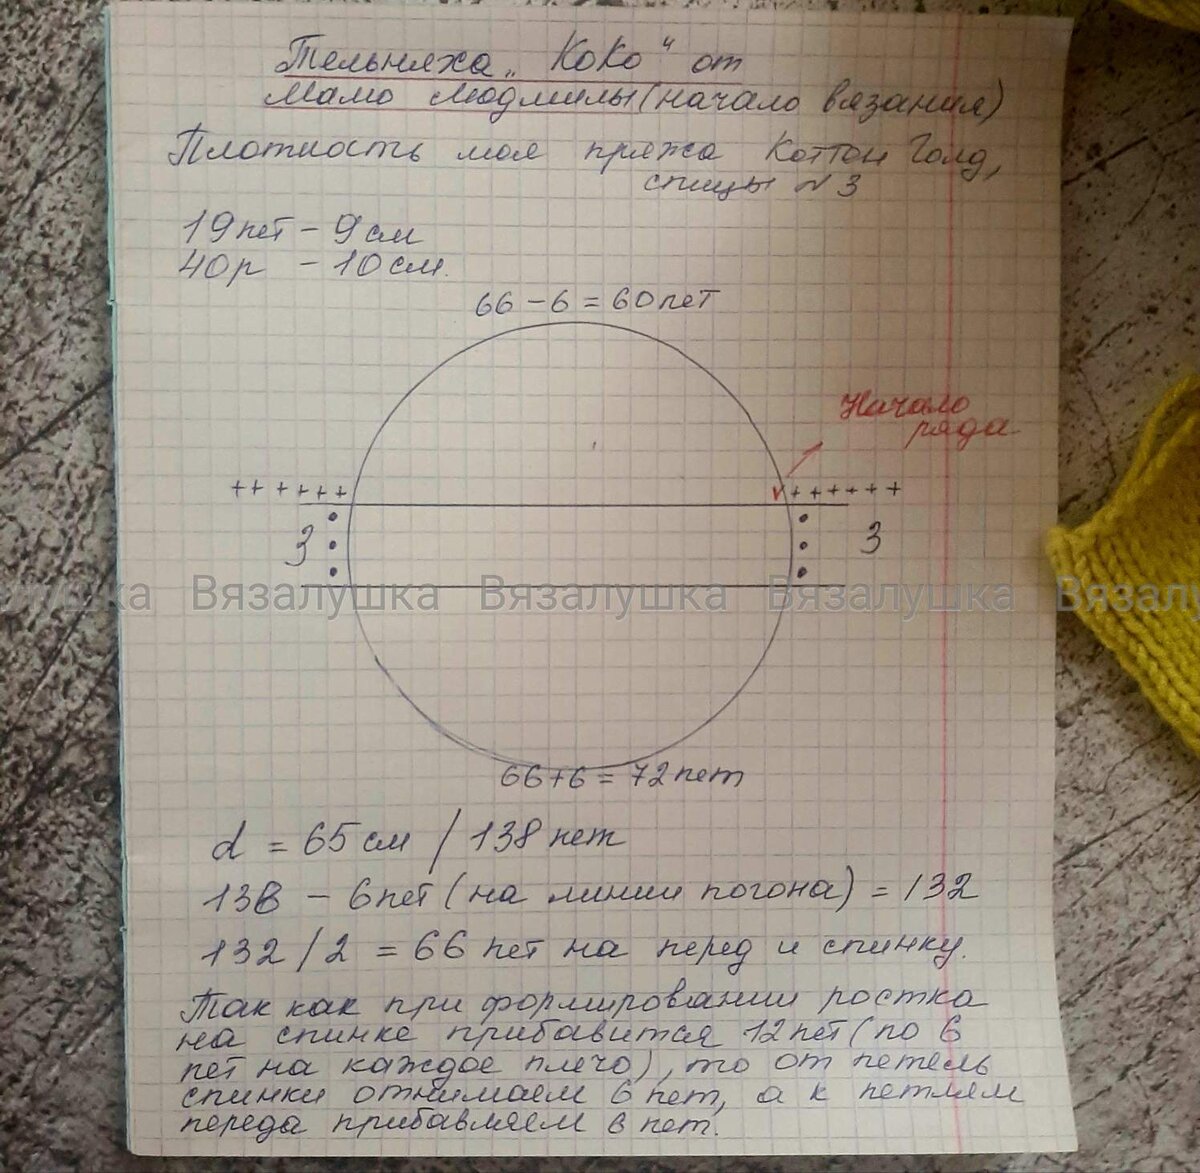 Тельняха „КоКо“ от
Мамо Людмилы (начало вязания)
Плотность моя пряжа Коттон Голд,
спицы № 3
19 пет – 9 см
40р – 10 см.
66 – 6 = 60 пет
Начало
ряда
+ + + + + +
v + + + + + +
3
3
Вязалушка Вязалушка Вязалушка
66 + 6 = 72 пет
d = 65 см / 138 пет
138 – 6 пет (на линии погона) = 132
132 / 2 = 66 пет на перед и спинку.
Так как при формировании ростка
на спинке прибавится 12 пет (по 6
пет на каждое плечо), то от петель
спинки отнимаем 6 пет, а к петлям
переда прибавляем 6 пет.